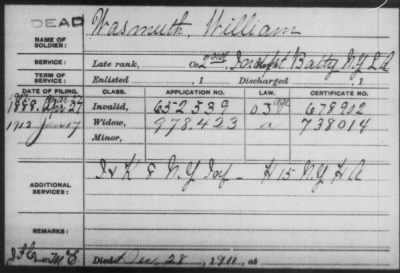 DEAD
NAME OF SOLDIER: Wasmuth, William
SERVICE: Late rank, Co. 22nd Indpt Batty N.Y. L.A.
TERM OF SERVICE: Enlisted , 1 Discharged , 1
DATE OF FILING. CLASS. APPLICATION NO. LAW. CERTIFICATE NO.
1888. Apr 27 Invalid, 652539 678902
1912 Jan 17 Widow, 978.423 738014
Minor,
ADDITIONAL SERVICES: I & K 8 N.Y. Inf - H 15 N.Y. H A
REMARKS:
Died Dec. 28, 1911, at